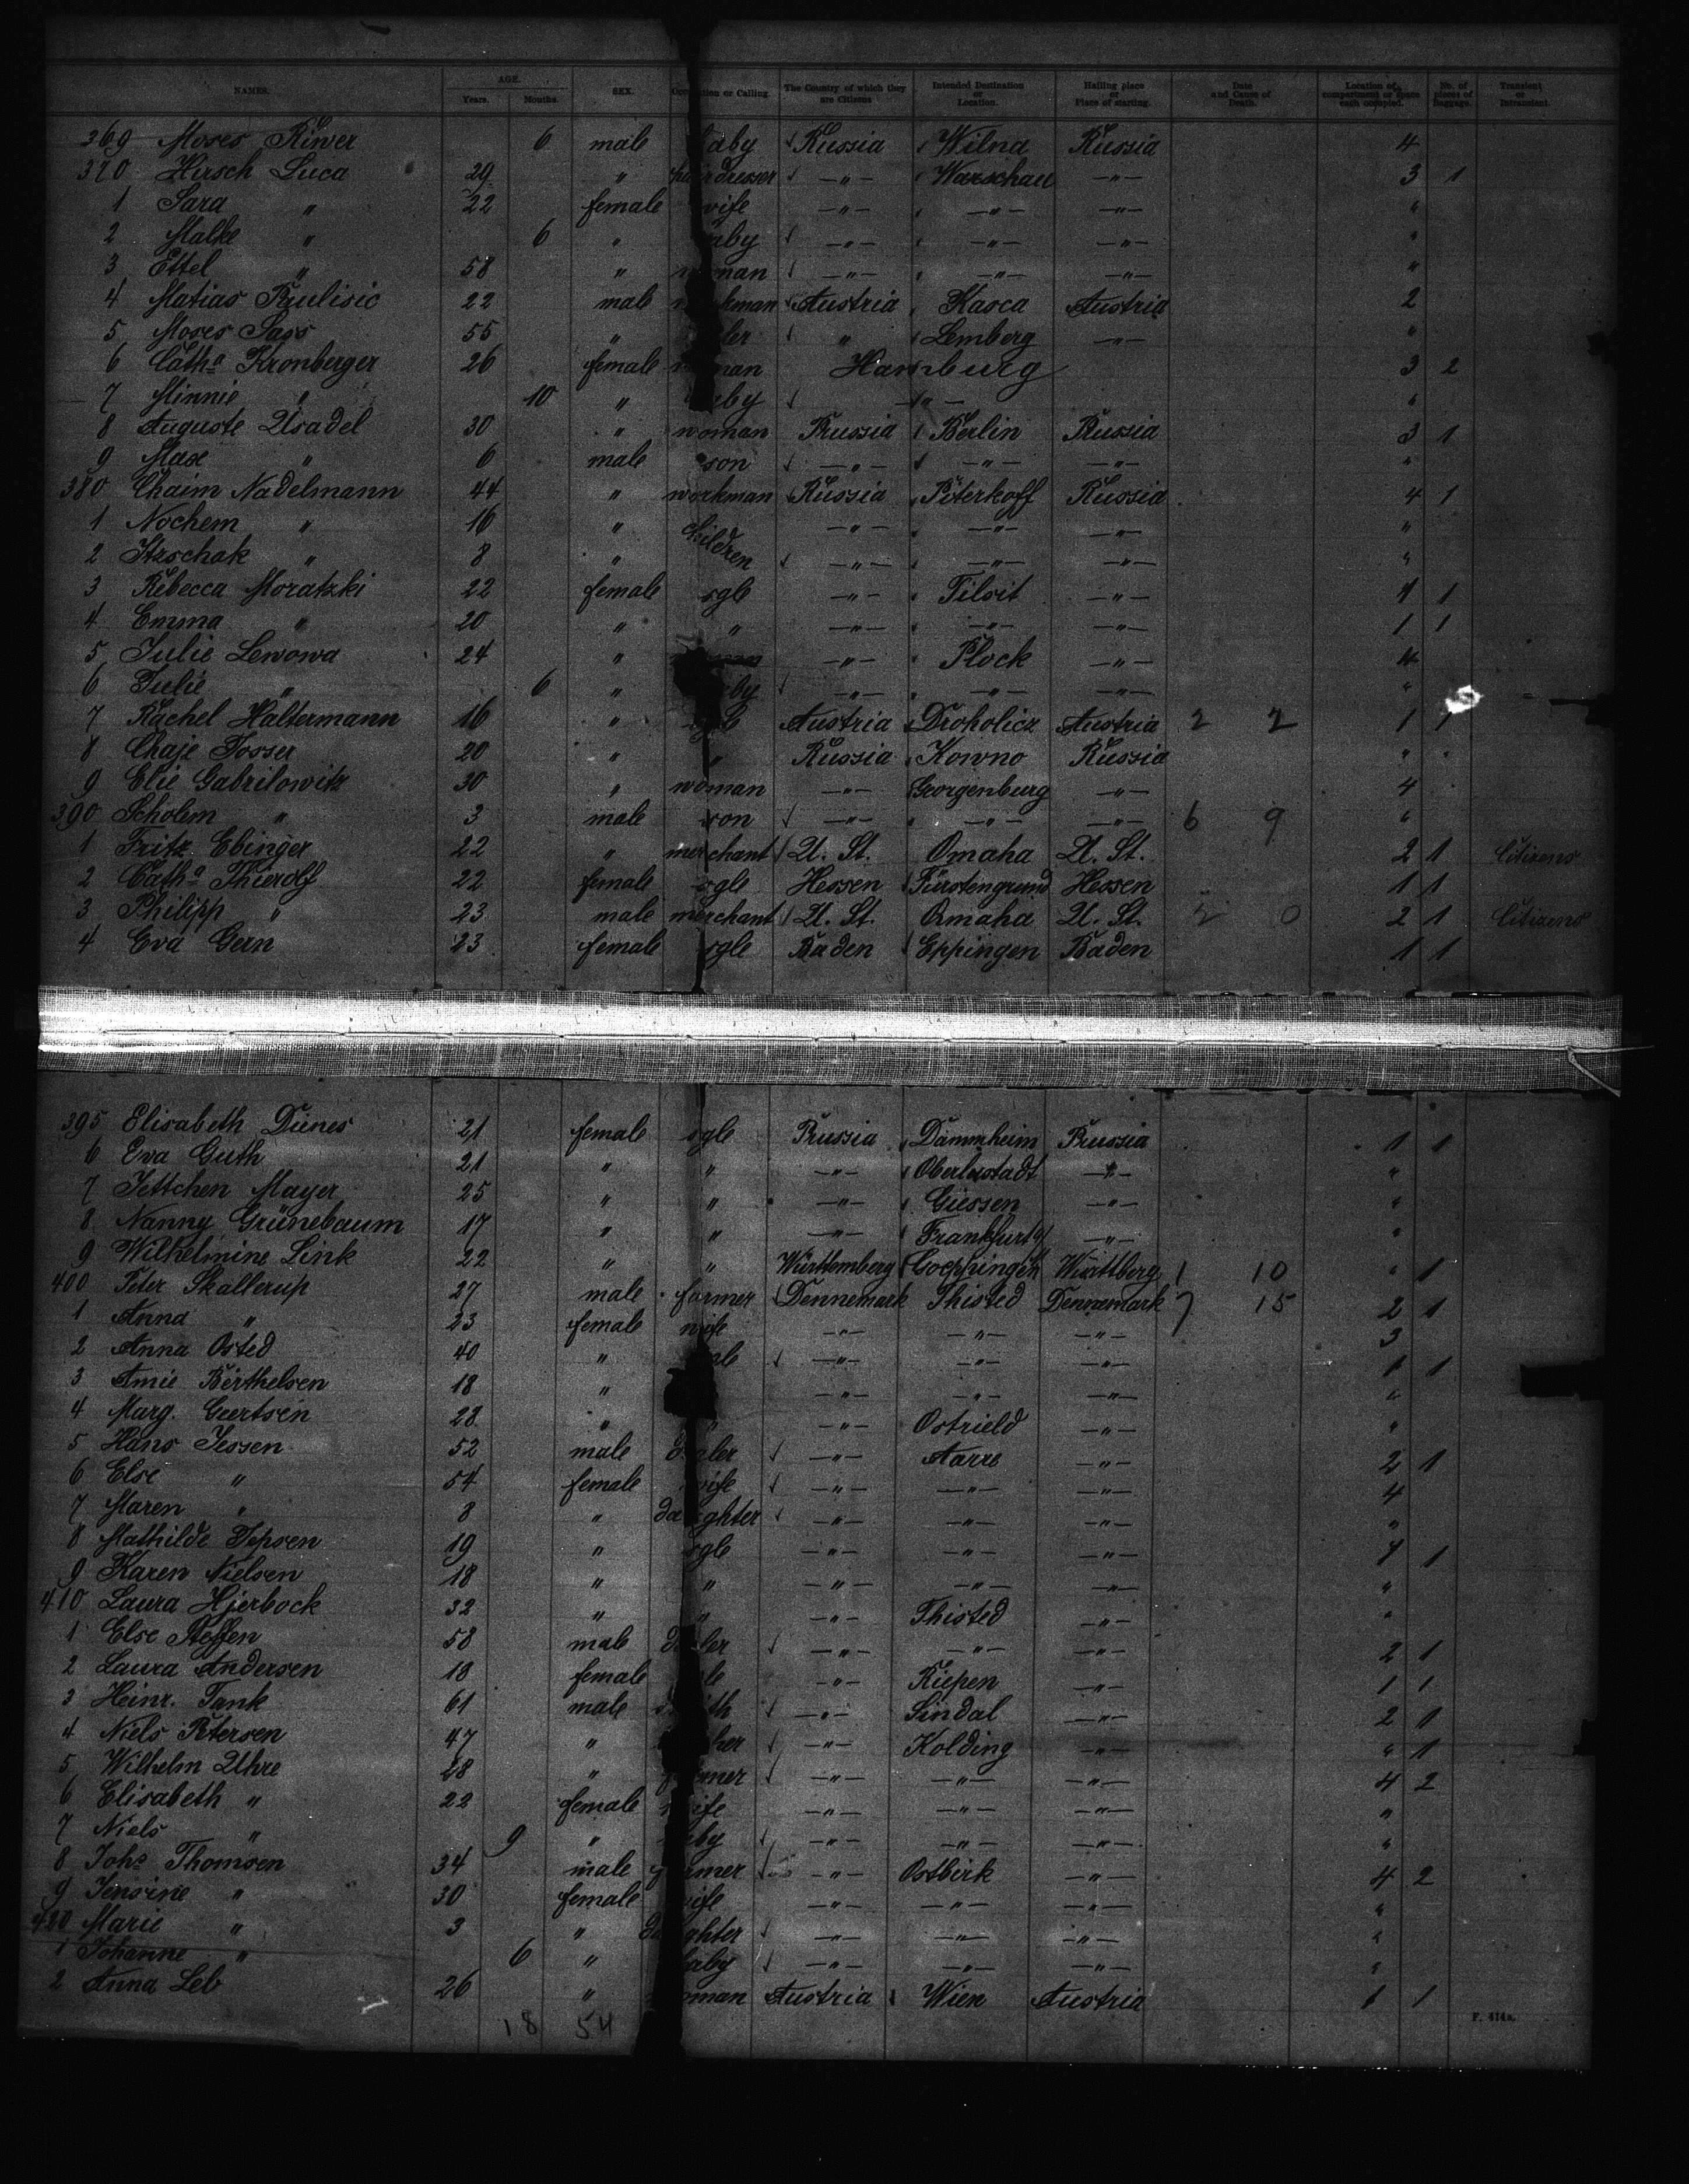 NAMES. AGE. Years. Months. SEX. Occupation or Calling. The Country of which they are Citizens Intended Destination or Location. Hailing place or Place of starting. Date and Cause of Death. Location of compartment or space each occupied. No. of pieces of Baggage. Transient or Intransient.
369 Moses Riwer 6 male baby Russia Wilna Russia 4
370 Hirsch Luca 29 " hairdresser —"— Warschau —"— 3 1
1 Sara " 22 female wife —"— —"— —"— "
2 Malke " 6 " baby —"— —"— —"— "
3 Ettel " 58 " woman —"— —"— —"— "
4 Matias 22 male workman Austria Kasca Austria 2
5 Moses Sass 55 " " Lemberg —"— "
6 Catha Kronberger 26 female woman Hamburg 3 2
7 Minnie " 10 " baby —"— "
8 Auguste Usadel 30 " woman Prussia Berlin Prussia 3 1
9 Max " 6 male son —"— —"— —"— "
380 Chaim Nadelmann 44 " workman Russia Peterkoff Russia 4 1
1 Nochem " 16 " children —"— —"— —"— "
2 Itzschak " 8 " —"— —"— —"— "
3 Rebecca Moratzki 22 female sgle —"— Tilsit —"— 1 1
4 Emma " 20 " " —"— —"— —"— 1 1
5 Julie Lewowa 24 " —"— Plock —"— 4
6 Julie " 6 " baby —"— —"— —"— "
7 Rachel Haltermann 16 " sgle Austria Droholicz Austria 2 2 1 1
8 Chaje Josser 20 " " Russia Kowno Russia " "
9 Elie Gabrilowitz 30 " woman —"— Georgenburg —"— 4
390 Scholem " 3 male son —"— —"— —"— 6 9 "
1 Fritz Ebinger 22 " merchant U. St. Omaha U. St. 2 1 Citizens
2 Catha Thierolf 22 female sgle Hessen Fürstengrund Hessen 1 1
3 Philipp " 23 male merchant U. St. Omaha U. St. 0 2 1 Citizens
4 Eva Gern 23 female sgle Baden Eppingen Baden 1 1
395 Elisabeth Dienes 21 female sgle Prussia Dammheim Prussia 1 1
6 Eva Guth 21 " " —"— Oberlustadt —"— "
7 Jettchen Mayer 25 " " —"— Giessen —"— "
8 Nanny Grünebaum 17 " " —"— Frankfurt —"— "
9 Wilhelmine Link 22 " " Württemberg Goeppingen Württbg 1 10 " 1
400 Peter Skallerup 27 male farmer Dennemark Thisted Dennemark 7 15 2 1
1 Anna " 23 female wife —"— —"— —"— 3
2 Anna Osted 40 " sgle —"— —"— —"— 1 1
3 Amie Berthelsen 18 " —"— —"— —"— "
4 Marg. Geertsen 28 " " —"— Ostrield —"— "
5 Hans Jessen 52 male —"— Aarre —"— 2 1
6 Else " 54 female wife —"— —"— —"— 4
7 Maren " 8 " daughter —"— —"— —"— "
8 Mathilde Jepsen 19 " sgle —"— —"— —"— 1 1
9 Karen Nielsen 18 " " —"— —"— —"— "
410 Laura Hjerbock 32 " " —"— Thisted —"— "
1 Else Steffen 58 male —"— —"— —"— 2 1
2 Laura Andersen 18 female sgle —"— Riepen —"— 1 1
3 Heinr. Tank 61 male smith —"— Sindal —"— 2 1
4 Niels Petersen 47 " —"— Kolding —"— " 1
5 Wilhelm Uhre 28 " farmer —"— —"— —"— 4 2
6 Elisabeth " 22 female wife —"— —"— —"— "
7 Niels " 9 " baby —"— —"— —"— "
8 Johs Thomsen 34 male farmer —"— Ostbirk —"— 4 2
9 Jensine " 30 female wife —"— —"— —"— "
420 Marie " 3 " daughter —"— —"— —"— "
1 Johanne " 6 " baby —"— —"— —"— "
2 Anna Leb 26 " woman Austria Wien Austria 1 1
18 54